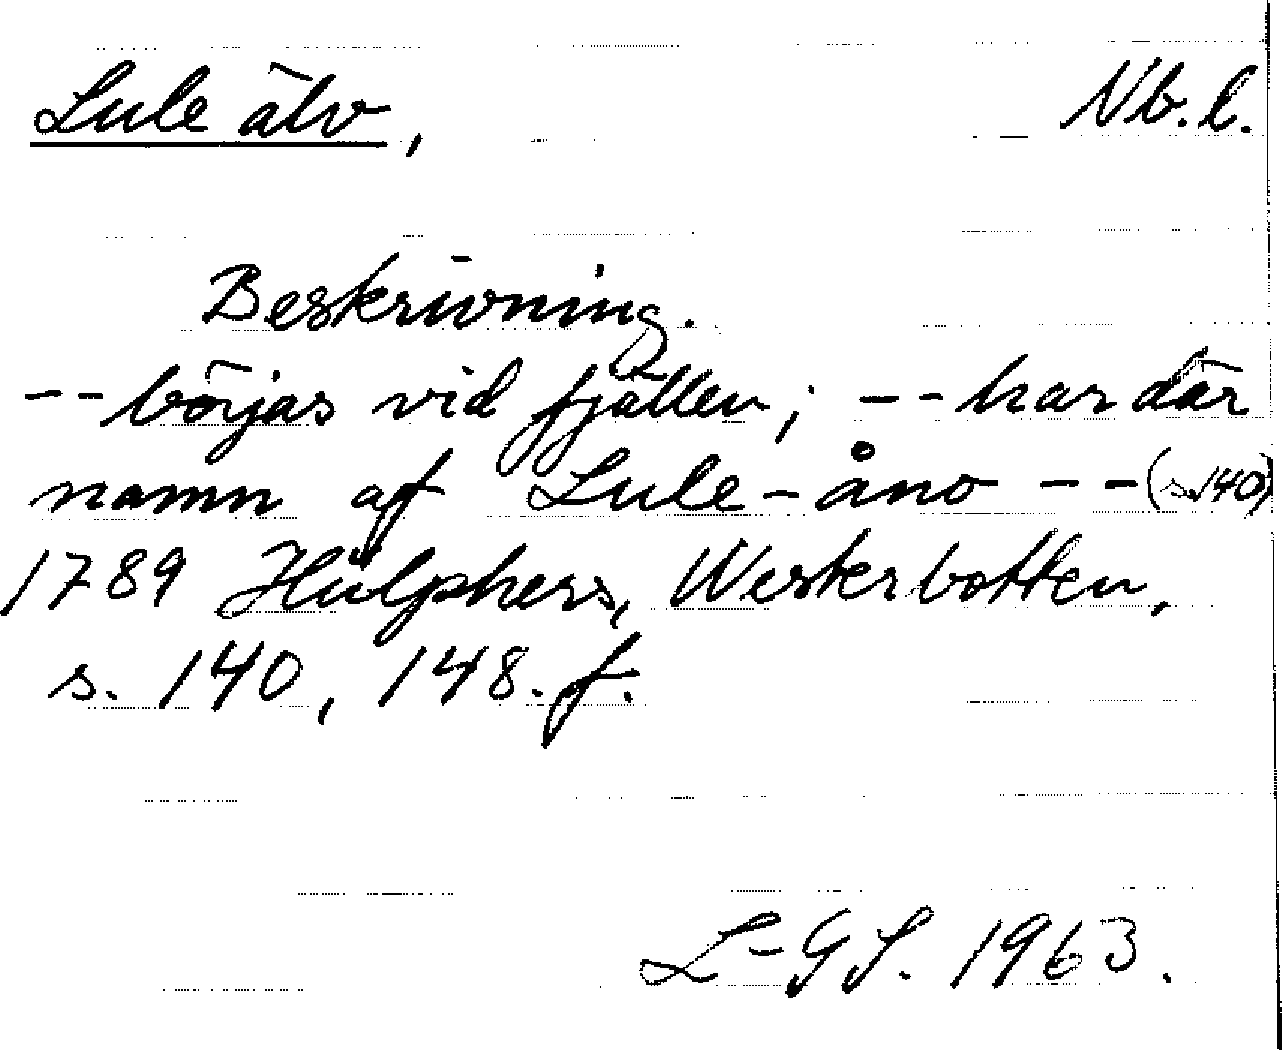 Lule älv, Nb. l.
Beskrivning.
-- börjas vid fjällen; -- har där
namn af Lule-åno -- (s. 140)
1789 Hülphers, Westerbotten,
s. 140, 148. f.
L-GS. 1963.